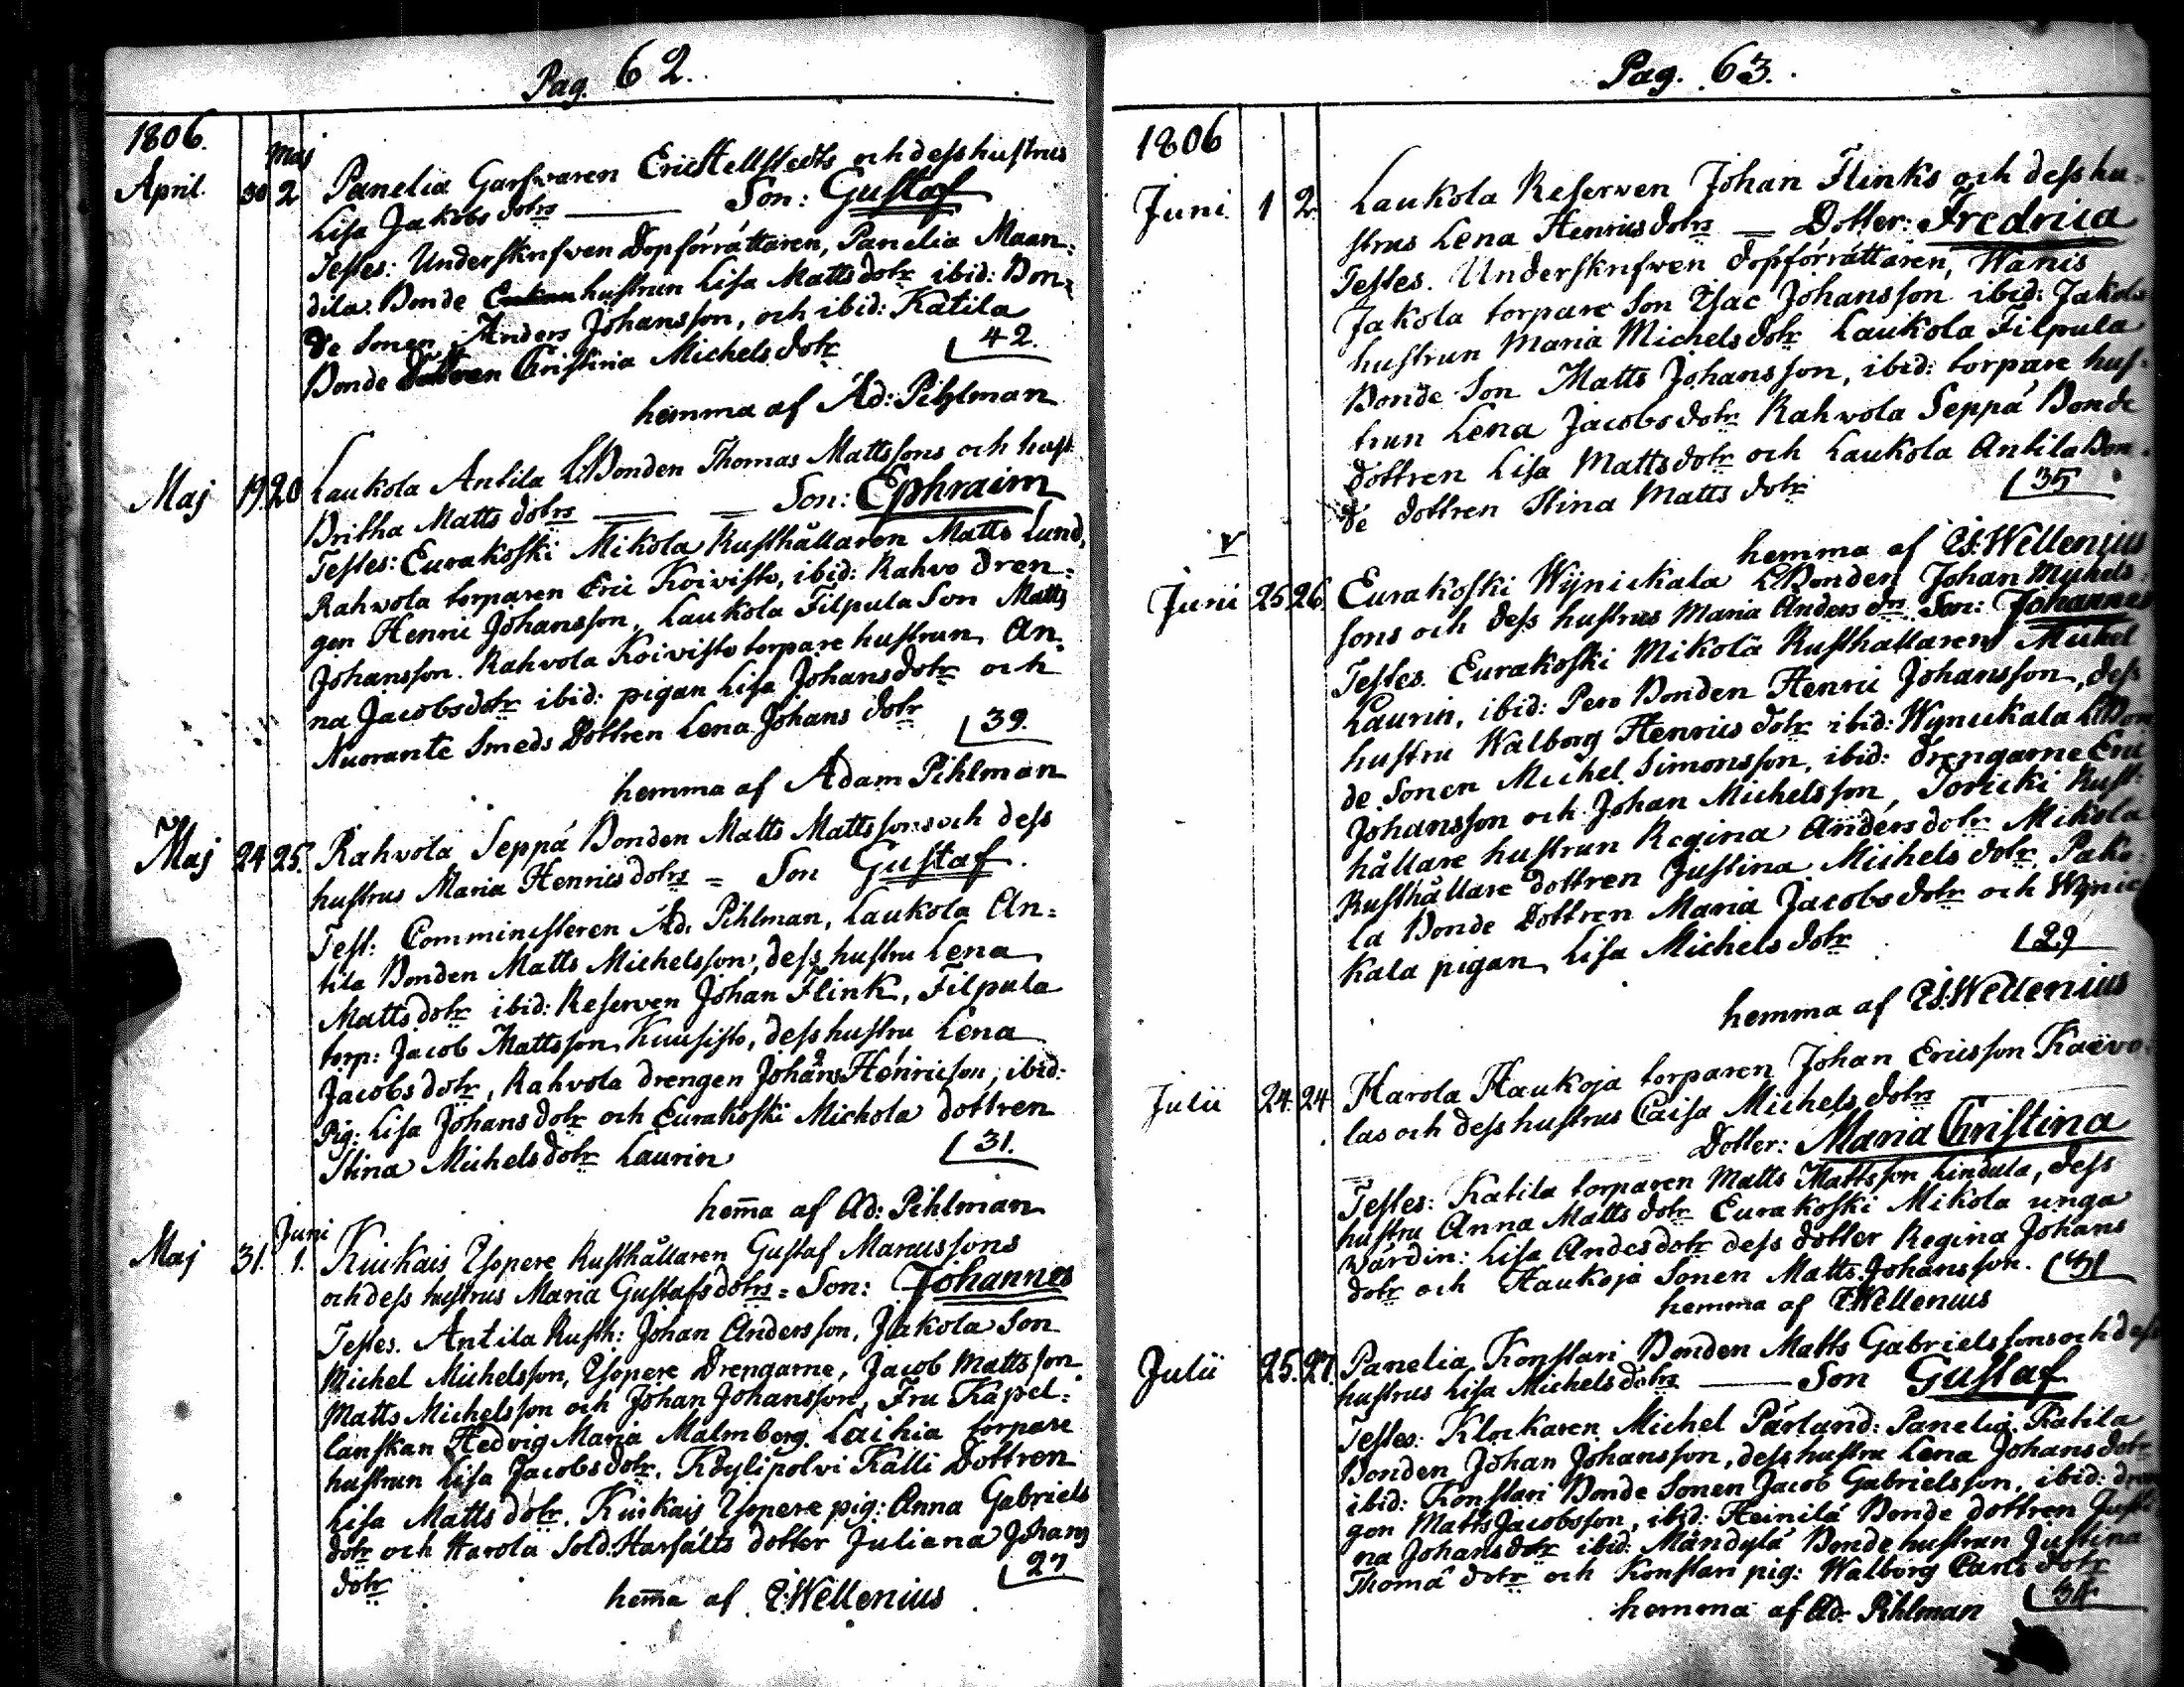 Pag. 62.
1806.
Maj
April. 30 2 Panelia Garfvaren Eric Hellstedts och dess hustrus
Lisa Jakobs dotrs — Son: Gustaf
Testes: Underskrifven Dopförrättaren, Panelia Maan-
dila Bonde hustrun Lisa Matts dotr ibid: Bon-
de Sonen Anders Johansson, och ibid: Katila
Bonde Christina Michels dotr 42.
hemma af Ad: Pihlman
Maj 19. 20 Laukola Antila LBonden Thomas Mattssons och hust
Britha Matts dotrs — — Son: Ephraim
Testes: Eurakoski Mikola Rusthållaren Matts Lund,
Rahvola torparen Eric Koivisto, ibid: Rahvo dren-
gen Henric Johansson, Laukola Filpula Son Matts
Johansson. Rahvola Koivisto torpare hustrun An-
na Jacobsdotr ibid: pigan Lisa Johansdotr och
Nuorante Smeds Dottren Lena Johans dotr 39.
hemma af Adam Pihlman
Maj 24 25. Rahvola Seppä Bonden Matts Mattssons och dess
hustrus Maria Henricsdotrs = Son Gustaf.
Test: Comministeren Ad. Pihlman, Laukola An-
tila Bonden Matts Michelsson, dess hustru Lena
Mattsdotr ibid: Reserven Johan Flink, Filpula
torp: Jacob Mattsson Kuusisto, dess hustru Lena
Jacobsdotr, Rahvola drengen Johans Henricson, ibid:
Pig: Lisa Johansdotr och Eurakoski Michola dottren
Stina Michelsdotr Laurin 31.
hem̄a af Ad: Pihlman
Juni
Maj 31. 1. Kiukais Ylopere Rusthållaren Gustaf Marcussons
och dess hustrus Maria Gustafsdotrs = Son: Johannes
Testes. Antila Rusth: Johan Andersson, Jakola Son
Michel Michelsson, Ylopere Drengarne, Jacob Mattsson
Matts Michelsson och Johan Johansson, Fru Kapel-
lanskan Hedvig Maria Malmberg. Laihia torpare
hustrun Lisa Jacobsdotr. Köylipolvi Källi Dottren
Lisa Matts dotr. Kiukais Ylopere pig: Anna Gabriels
dotr och Harola Sold. Harfälts dotter Juliana Johans
dotr 27
hem̄a af E: Wellenius
Pag. 63.
1806
Juni 1 2. Laukola Reserven Johan Flinks och dess hu-
strus Lena Henricsdotrs — Dotter: Fredrica
Testes. Underskrifwen dopförrättaren, Wanis
Jakola torpare Son Isac Johansson ibid: Jakola
hustrun Maria Michelsdotr Laukola Filpula
Bonde Son Matts Johansson, ibid: torpare hus-
trun Lena Jacobsdotr Rahvola Seppä Bonde
dottren Lisa Mattsdotr och Laukola Antila Bon-
de dottren Stina Matts dotr 35
hemma af E: Wellenius
Juni 25 26. Eurakoski Wijnickala LBonden Johan Michels
sons och dess hustrus Maria Anders drs Son: Johannes
Testes. Eurakoski Mikola Rusthållaren Michel
Laurin, ibid: Pero Bonden Henric Johansson, dess
hustru Walborg Henrics dotr ibid: Wynickala LBon
de Sonen Michel Simonsson, ibid: drengarne Eric
Johansson och Johan Michelsson, Soricki Rust-
hållare hustrun Regina Andersdotr Mikola
Rusthållare dottren Justina Michels dotr. Pako-
la Bonde Dottren Maria Jacobsdotr och Wynic
kala pigan Lisa Michels dotr 29
hemma af E: Wellenius
Julii 24. 24 Harola Haukoja torparen Johan Ericsson Kaivo-
las och dess hustrus Caisa Michels dotrs
Dotter: Maria Christina
Testes: Katila torparen Matts Mattsson Lindula, dess
hustru Anna Matts dotr Eurakoski Mikola unga
Wärdin: Lisa Andesdotr dess dotter Regina Johans
dotr och Haukoja Sonen Matts Johansson. 31
hemma af E: Wellenius
Julii 25. 27. Panelia Konstari Bonden Matts Gabrielssons och dess
hustrus Lisa Michelsdotrs — Son Gustaf
Testes: Klockaren Michel Pärlund: Panelia Katila
Bonden Johan Johansson, dess hustru Lena Johansdotr
ibid: Konstari Bonde Sonen Jacob Gabrielsson, ibid: dren
gen Matts Jacobsson, ibid: Heinilä Bonde dottren Justi
na Johansdotr ibid: Mändylä Bonde hustrun Justina
Thomä dotr och Konstari pig: Walborg Carls dotr
hemma af Ad: Pihlman 34